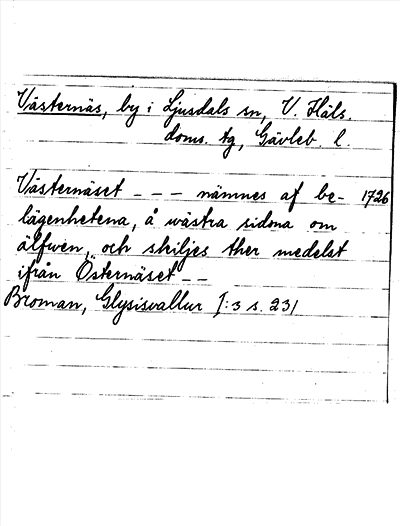 Västernäs, by i Ljusdals sn, V. Häls.
doms. tg, Gävleb. l.
Västernäset - - - nämnes af be- 1726
lägenhetena, å wästra sidona om
älfwen, och skiljes ther medelst
ifrån Östernäset - -
Broman, Glysisvallur I:3 s. 231